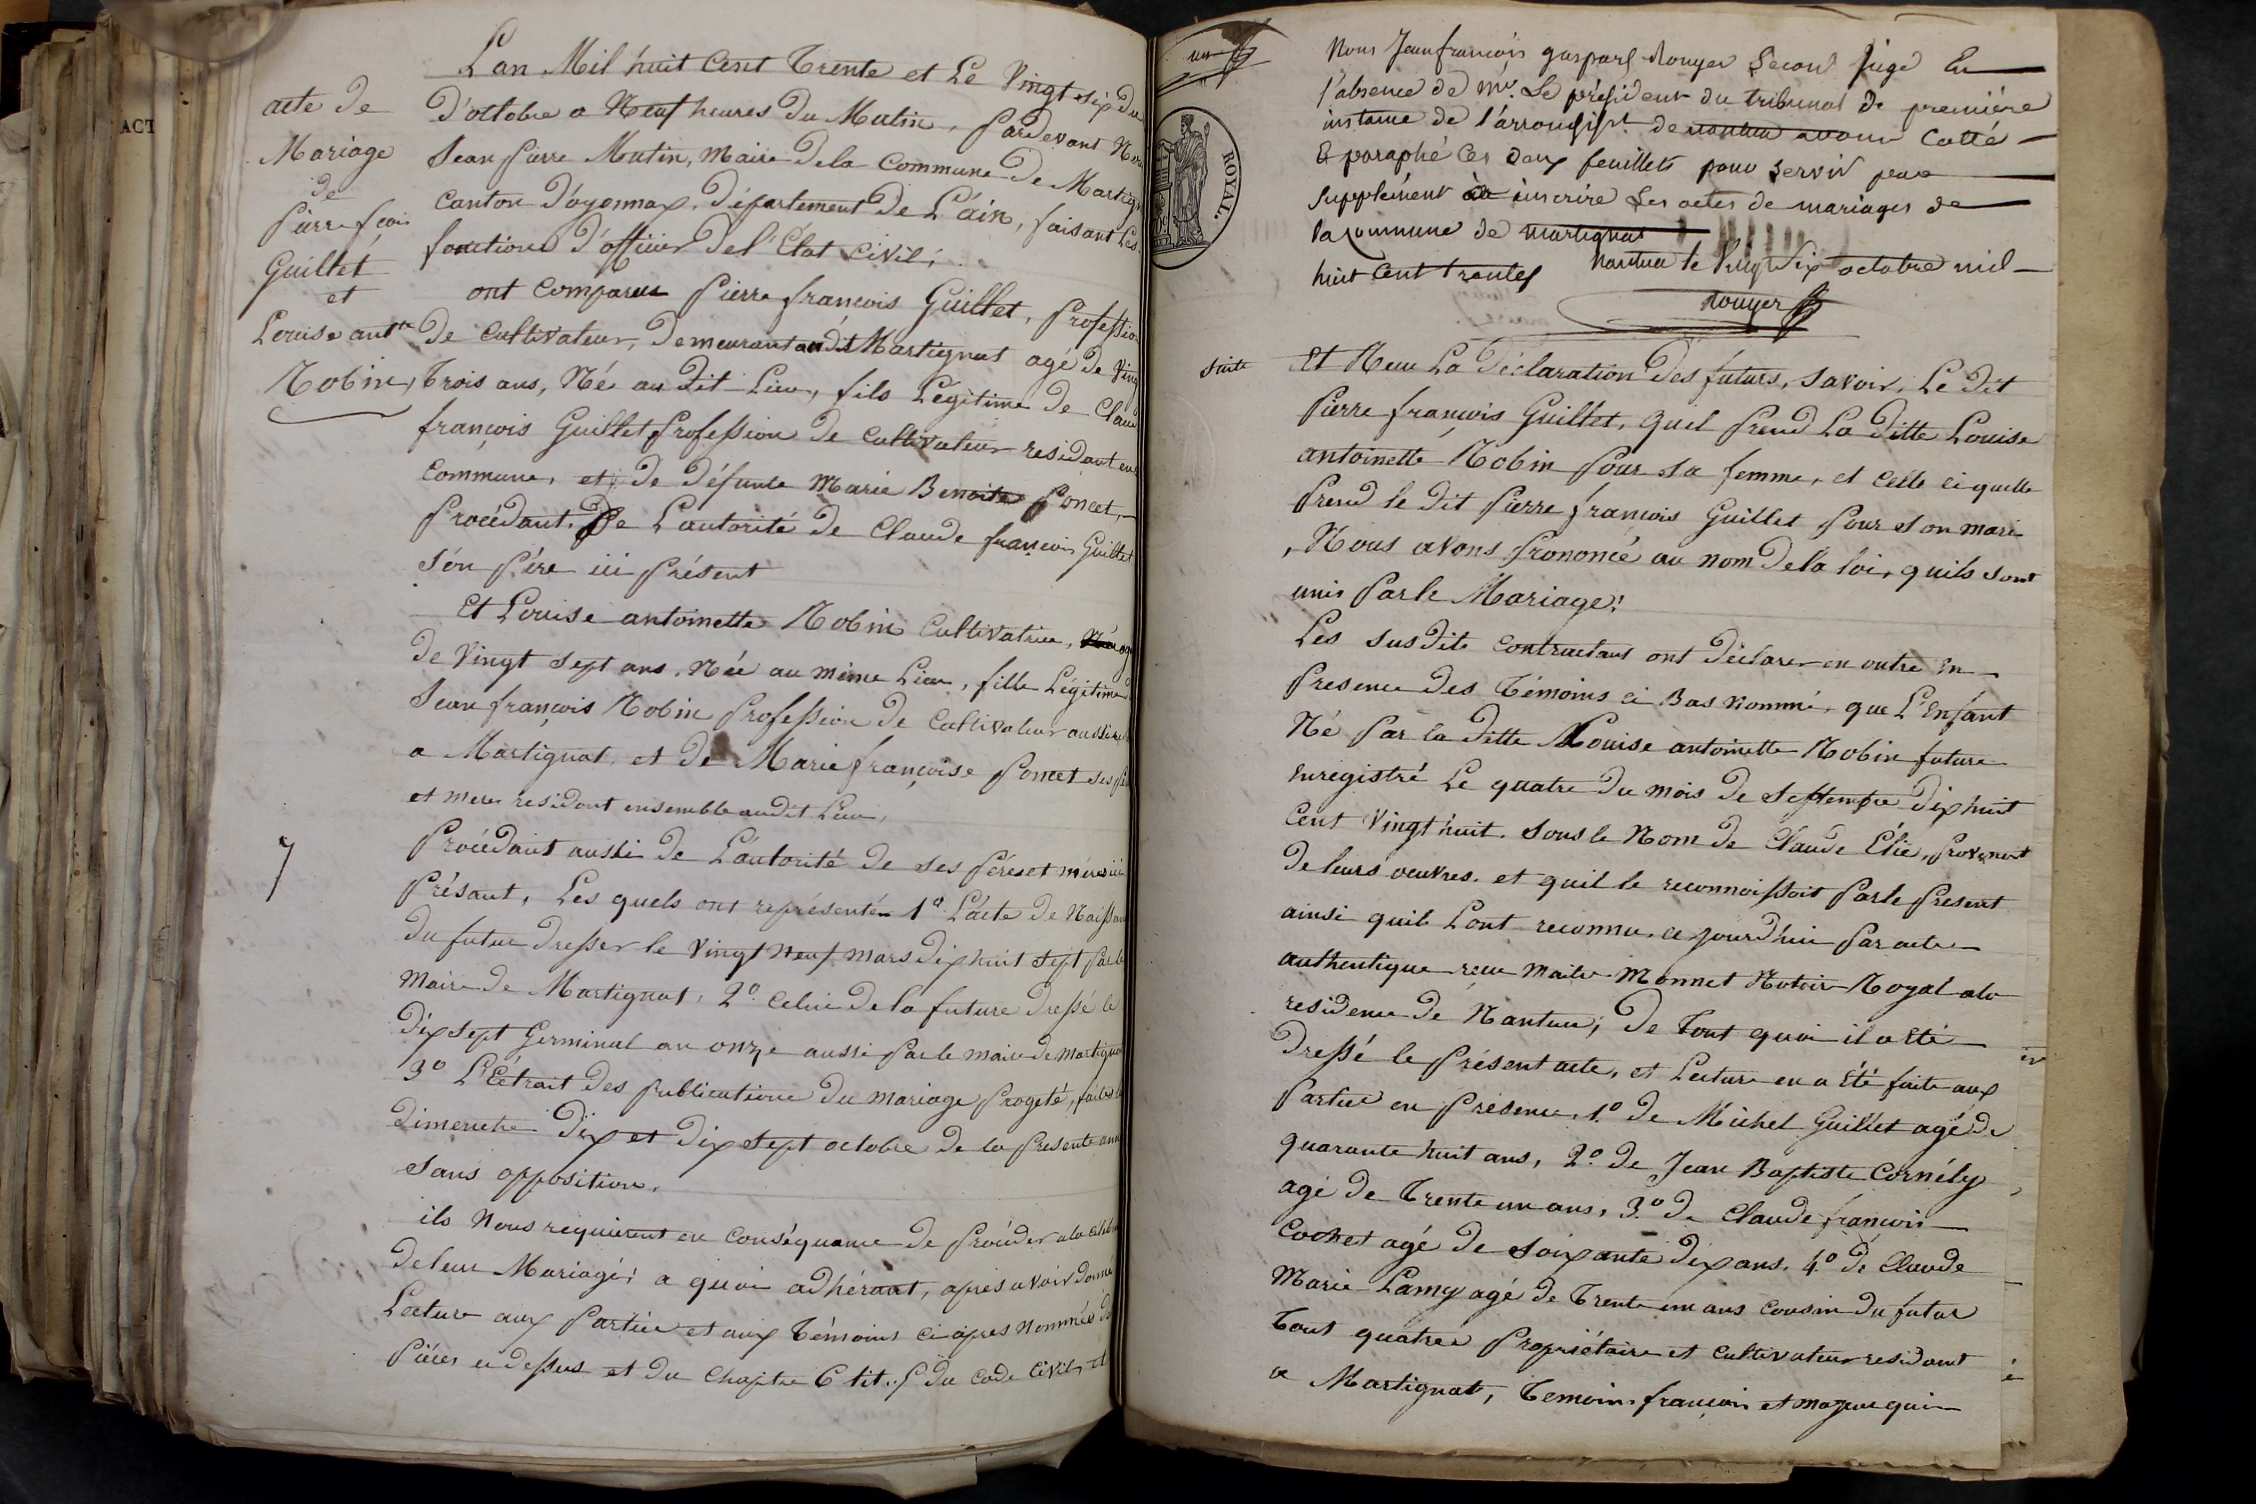 ACT
acte de
Mariage
de
Pierre fcois
Guillet
et
Louise antte
Robin,
7
Lan Mil huit Cent Trente et Le Vingt six du
D'octobre a Neuf heures du Matin, Pardevant
Jean Pierre Mutin, Maire De la Commune De
Canton D'oyonnax, Département De L'ain, faisant Les
fonctions D'officier De l'État Civil,
ont Comparus Pierre françois Guillet, Profession
De Cultivateur, Demeurant audit Martignat agé De
Trois ans, Né au Dit Lieu, fils Légitime De
françois Guillet Profession De Cultivateur residant
Commune, et De Défunte Marie Benoite Poncet,
Procédant De L'autorité De Claude françois Guillet
Son Pére ici Présent
Et Louise antoinette Robin Cultivatrice,
De Vingt Sept ans, Née au même Lieu, fille Légitime
Jean françois Robin Profession De Cultivateur
a Martignat, et De Marie françoise Poncet ses
et mere residant ensemble audit Lieu,
Procédant aussi De L'autorité De Ses Péres et méres ici
Présant, Les quels ont représentés 1º L'acte De
Du futur Dresser le Vingt Neuf mars Dix huit Sept Par le
Maire De Martignat, 2º Celui De la future Dressé le
Dix Sept Germinal an onze aussi Par le maire de
3º L'Extrait Des Publications Du mariage Progeté,
Dimenche Dix et Dix Sept octobre De la Presente
Sans opposition.
ils Nous requierent en Conséquance De Procéder a la
De leur Mariage; a quoi adhérant, aprés avoir Donné
Lecture aux Parties et aux Témoins Ci apres Nommés
Piéces ci Dessus et Du Chapitre 6 tit. 5 Du Code Civil, et
ROYAL.
Nous Jean françois gaspard Rouyer Second juge En
l'absence de Mr. Le président du tribunal de première
instance de l'arrondisst. de nantua avons Cotté
& paraphé Ces deux feuillets pour servir
Supplément inscrire Les actes de mariages de
la Commune de Martignat
nantua le Vingt Six octobre mil
huit Cent trente
Rouyer
Suite
Et Recu La Déclaration Des futurs, Savoir, Le Dit
Pierre françois Guillet, Quil Prend La Ditte Louise
antoinette Robin Pour Sa femme, et Celle Ci quelle
Prend le Dit Pierre françois Guillet Pour Son mari
, Nous avons Prononcé au nom De la loi, quils Sont
unis Par le Mariage;
Les Sus Dits Contractants ont Déclarer en outre En
Presence Des Témoins Ci Bas Nommé, que L'Enfant
Né Par la Ditte Louise antoinette Robin future
Enregistré Le quatre Du mois De Septembre Dix huit
Cent Vingt huit, Sous le Nom De Claude Élie, Provenent
De leurs oeuvres, et quil le reconnoissoit Par le Présent
ainsi quils L'ont reconnu, ce jourd'hui Par acte
authentique recu maitre Monnet Notoir Royal a la
residence De Nantua; De Tout quoi il a Eté
Dressé le Présent acte, et Lecture en a Été faite aux
Parties en Présence, 1º De Michel Guillet agé De
quarante huit ans, 2º De Jean Baptiste Cornély
agé De Trente un ans, 3º De Claude françois
Cochet agé De Soixante Dix ans, 4º De Claude
Marie Lamy agé De Trente un ans Cousin Du futur
Tous quatre Propriétaire et Cultivateur residant
a Martignat, Témoins françois et majeur qui